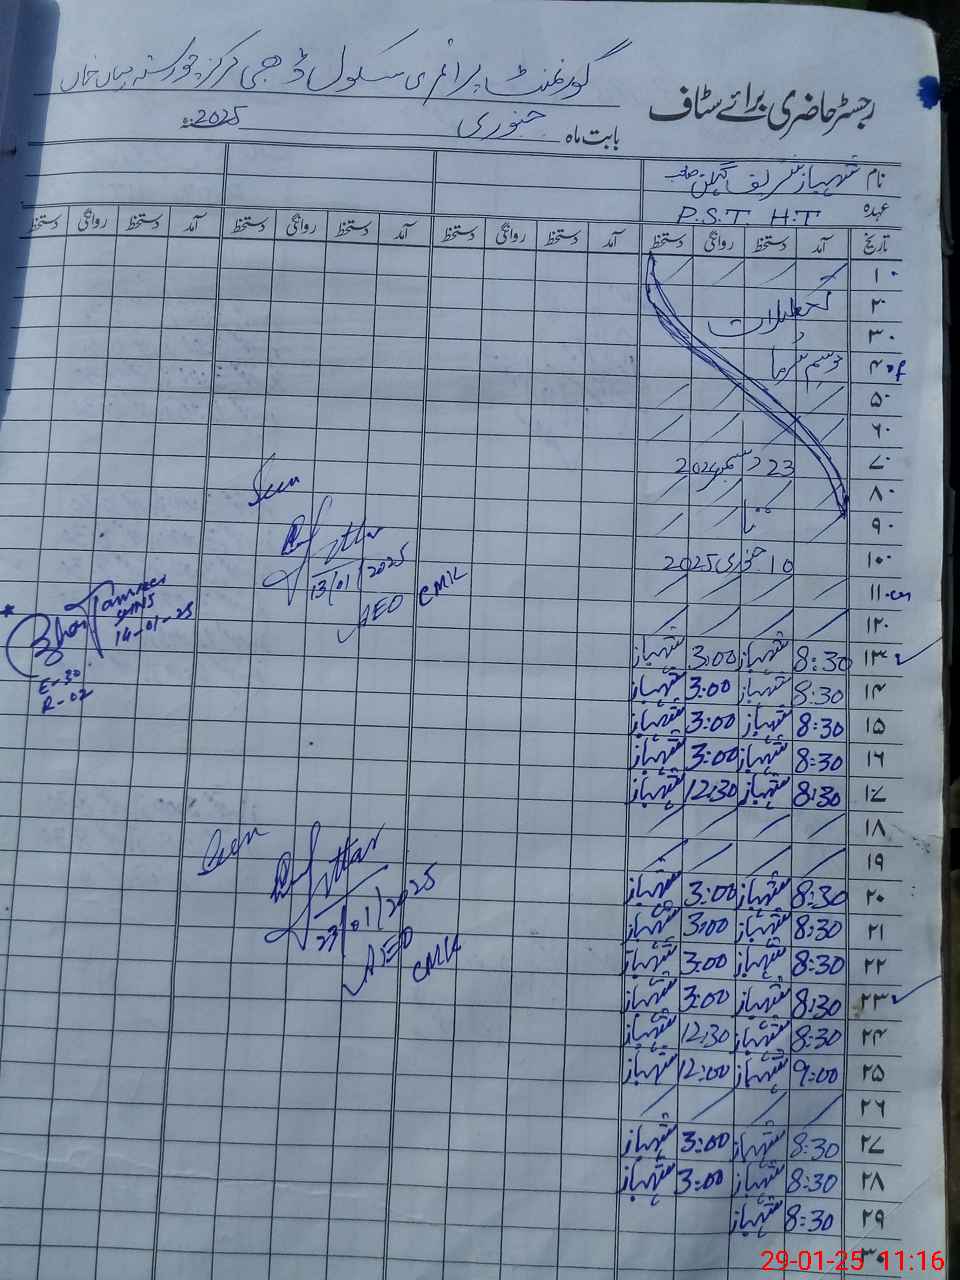 رجسٹر حاضری برائے سٹاف
گورنمنٹ پرائمری سکول ڈھجی مرکز چورستہ میاں خاں
بابت ماہ جنوری 2025ء
نام شہباز شریف صاحب
عہدہ P.S.T H.T
تاریخ آمد دستخط روانگی دستخط آمد دستخط روانگی دستخط آمد دستخط روانگی دستخط
۱۰
۲۰ تعطیلات
۳۰
۴۰ موسم سرما
۵۰
۶۰
۷۰ 23 دسمبر 2024
۸۰
۹۰ تا
۱۰۰ 10 جنوری 2025
۱۱۰
۱۲۰
۱۳ 8:30 شہباز 3:00 شہباز
۱۴ 8:30 شہباز 3:00 شہباز
۱۵ 8:30 شہباز 3:00 شہباز
۱۶ 8:30 شہباز 3:00 شہباز
۱۷ 8:30 شہباز 12:30 شہباز
۱۸
۱۹
۲۰ 8:30 شہباز 3:00 شہباز
۲۱ 8:30 شہباز 3:00 شہباز
۲۲ 8:30 شہباز 3:00 شہباز
۲۳ 8:30 شہباز 3:00 شہباز
۲۴ 8:30 شہباز 12:30 شہباز
۲۵ 9:00 شہباز 12:00 شہباز
۲۶
۲۷ 8:30 شہباز 3:00 شہباز
۲۸ 8:30 شہباز 3:00 شہباز
۲۹ 8:30 شہباز
۳۰
Seen
13/01/2025
AEO CMK
14-01-25
E-30
R-02
Seen
23/01/2025
AEO
CMK
29-01-25 11:16